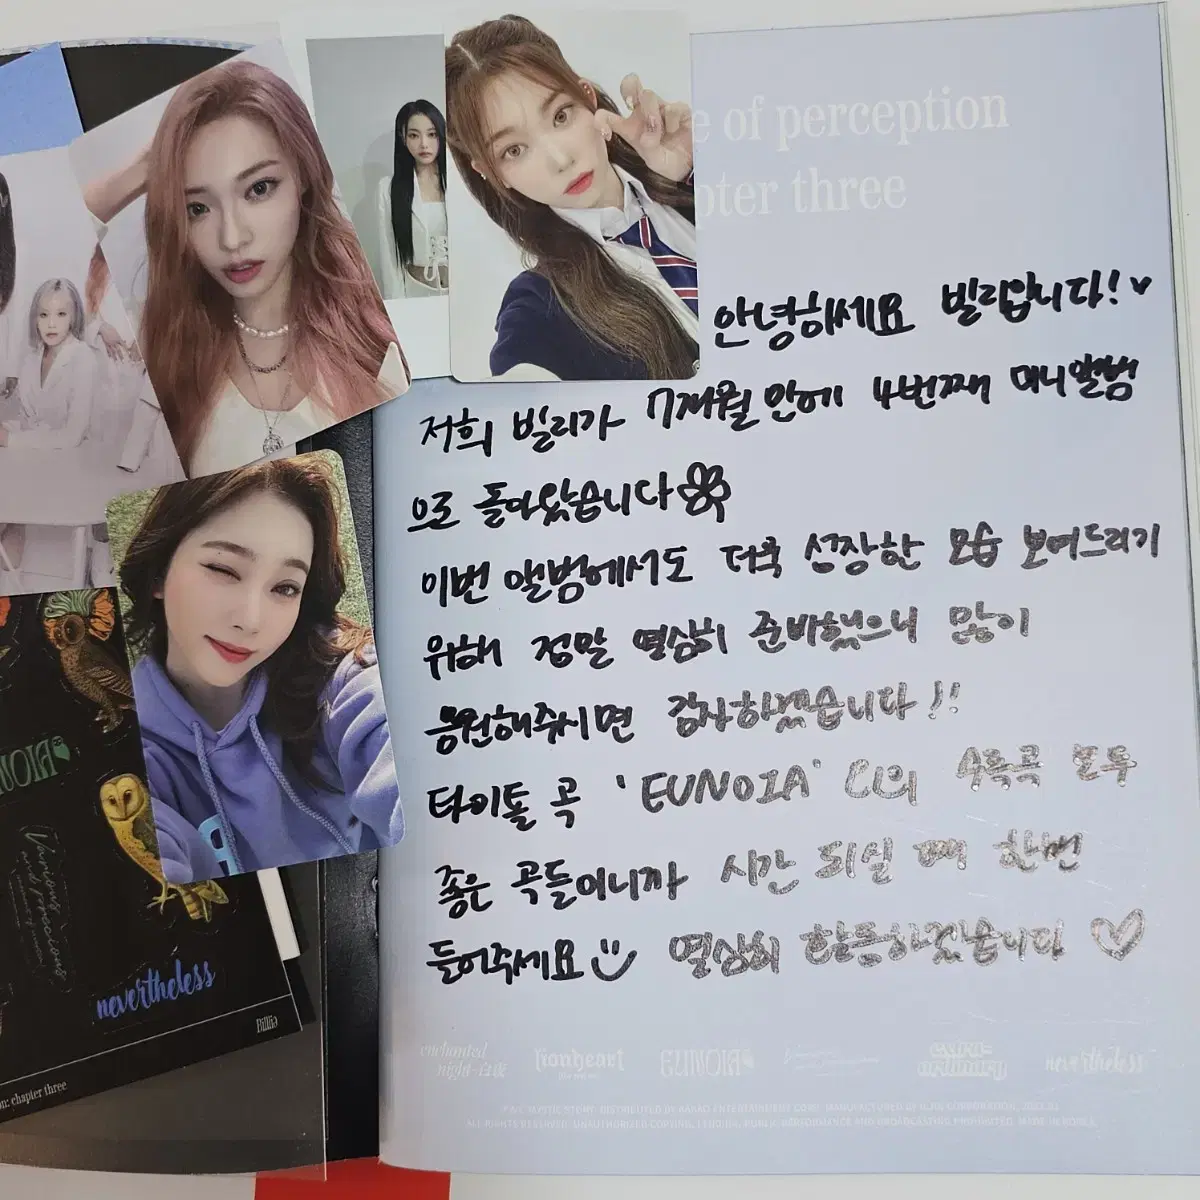 e of perception
pter three
안녕하세요 빌리입니다!
저희 빌리가 7개월 안에 4번째 미니앨범
으로 돌아왔습니다
이번 앨범에서도 더욱 성장한 모습 보여드리기
위해 정말 열심히 준비했으니 많이
응원해주시면 감사하겠습니다!!
타이틀 곡 'EUNOIA' 외의 수록곡 모두
좋은 곡들이니까 시간 되실 때 한번
들어주세요 열심히 활동하겠습니다
EUNOIA
Various
and Precious
nevertheless
Billlie
on: chapter three
enchanted
night~白夜
lionheart
EUNOIA
extra-
ordinary
nevertheless
ALL RIGHTS RESERVED. UNAUTHORIZED COPYING, LENDING, PUBLIC PERFORMANCE AND BROADCASTING PROHIBITED. MADE IN KOREA.